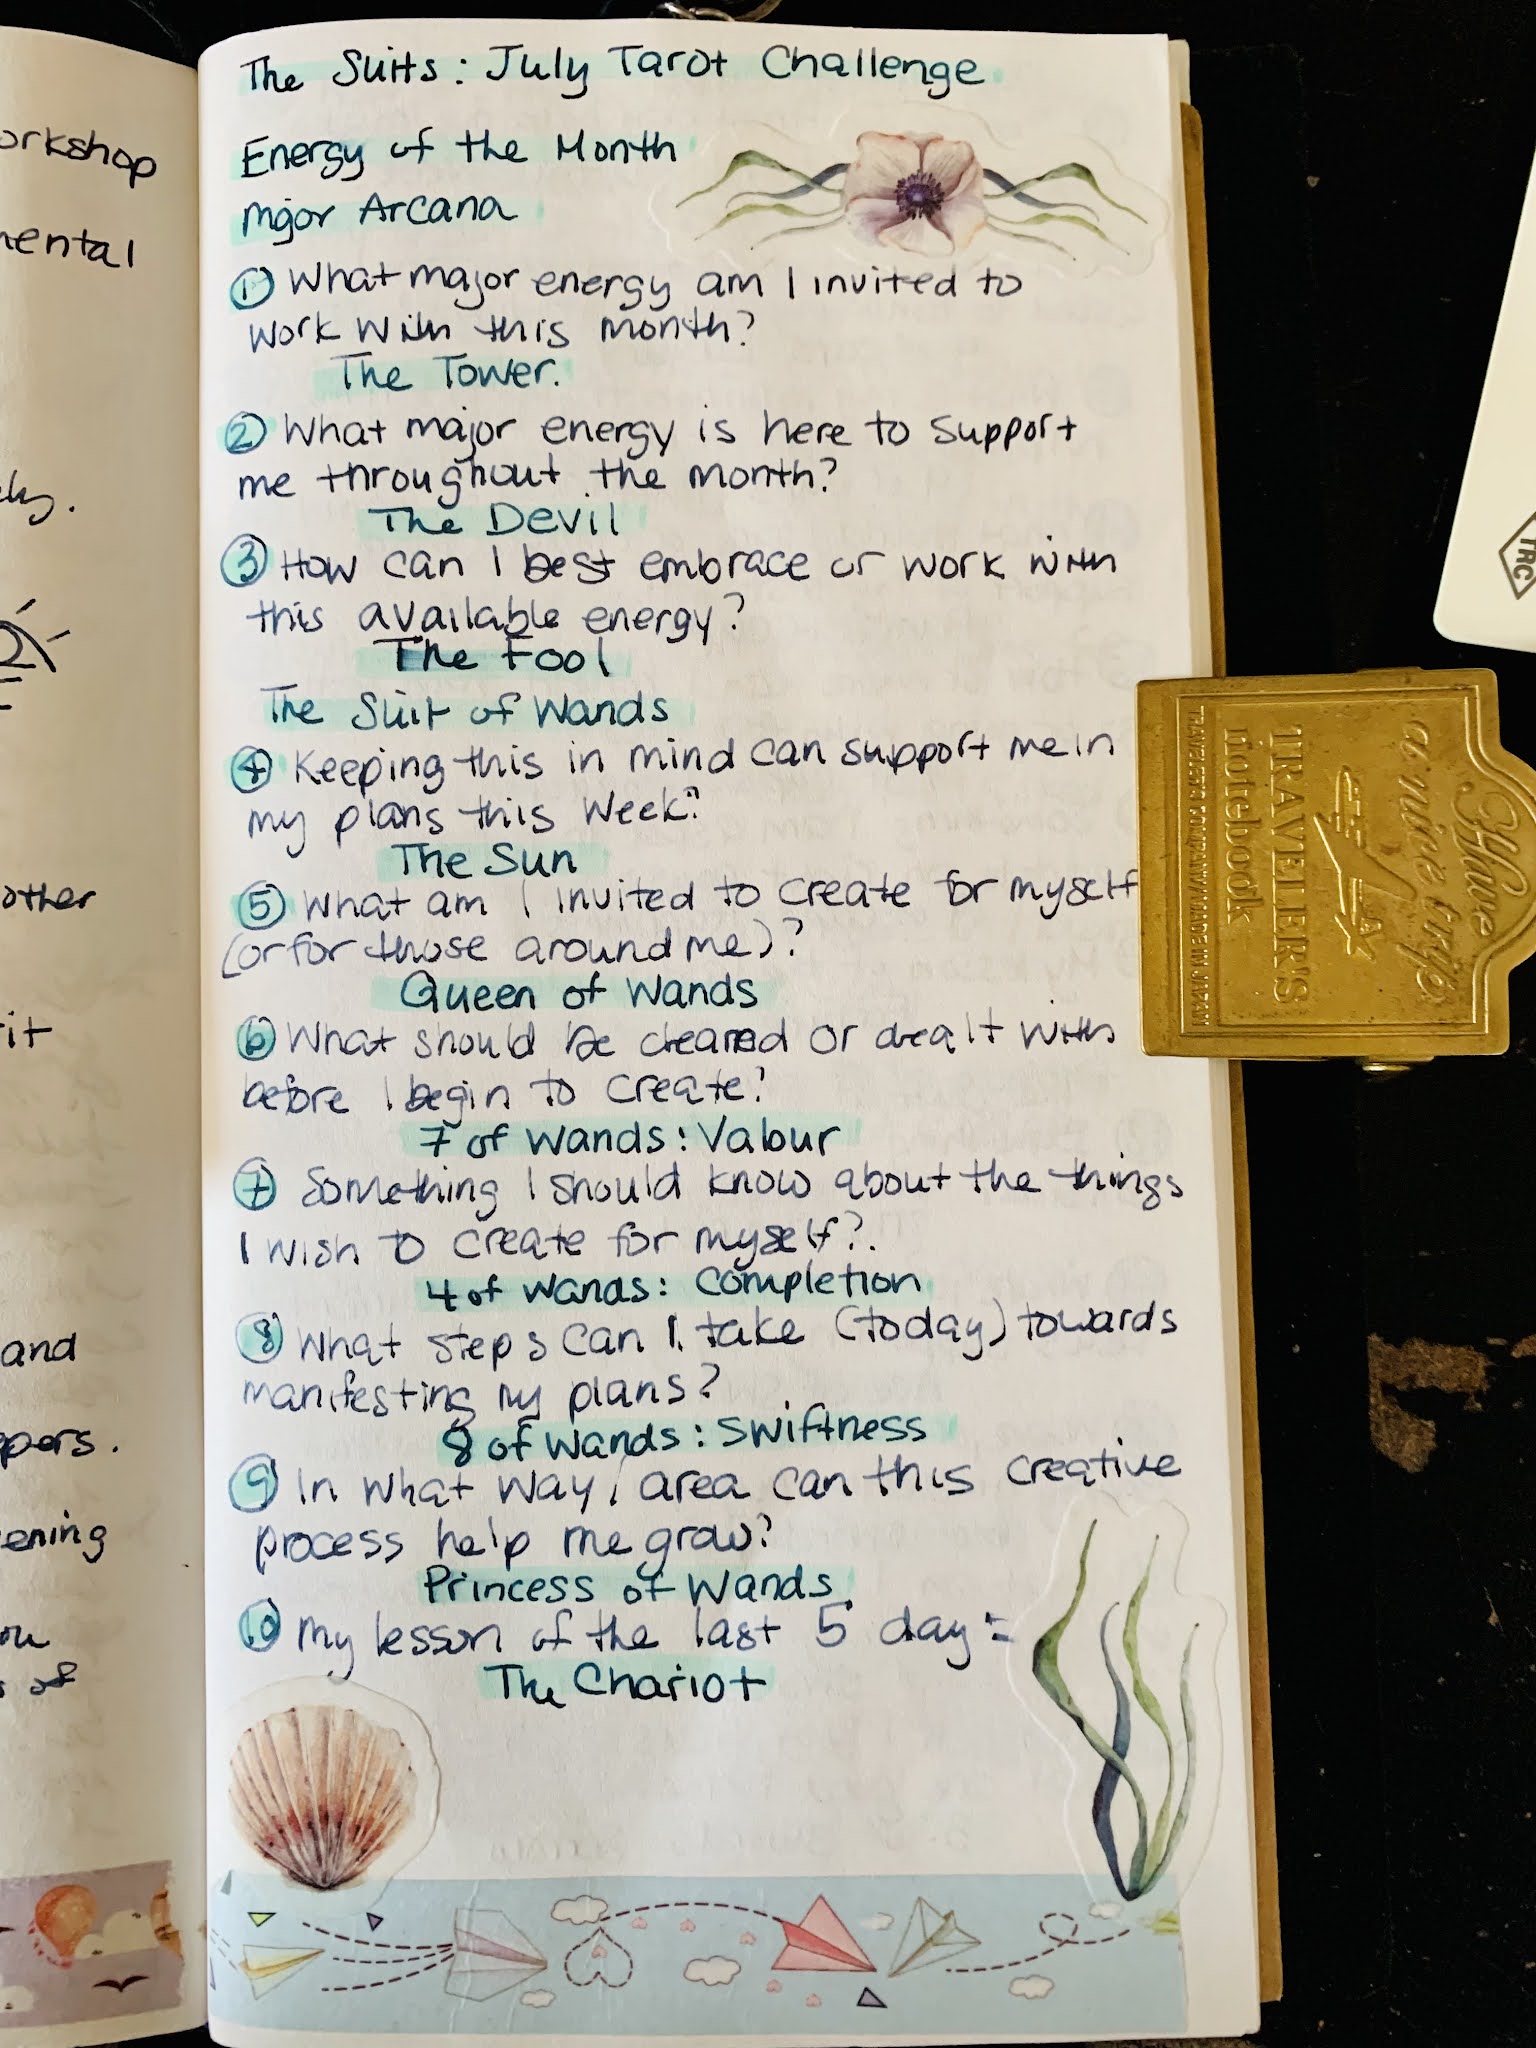 The Suits: July Tarot Challenge
Energy of the Month
Major Arcana
① What major energy am I invited to
work with this month?
The Tower.
② What major energy is here to support
me throughout the month?
The Devil
③ How can I best embrace or work with
this available energy?
The Fool
The Suit of Wands
④ Keeping this in mind can support me in
my plans this week?
The Sun
⑤ What am I invited to create for myself
(or for those around me)?
Queen of Wands
⑥ What should be cleared or dealt with
before I begin to create?
7 of Wands: Valour
⑦ Something I should know about the things
I wish to create for myself?.
4 of Wands: Completion
⑧ What steps can I take (today) towards
manifesting my plans?
8 of Wands: Swiftness
⑨ In what way, area can this creative
process help me grow?
Princess of Wands.
⑩ My lesson of the last 5 day:
The Chariot
orkshop
mental
ely.
other
it
and
ppers.
ening
ou
of
Have
a nice trip
TRAVELER'S
notebook
TRAVELER'S COMPANY MADE IN JAPAN
TRC